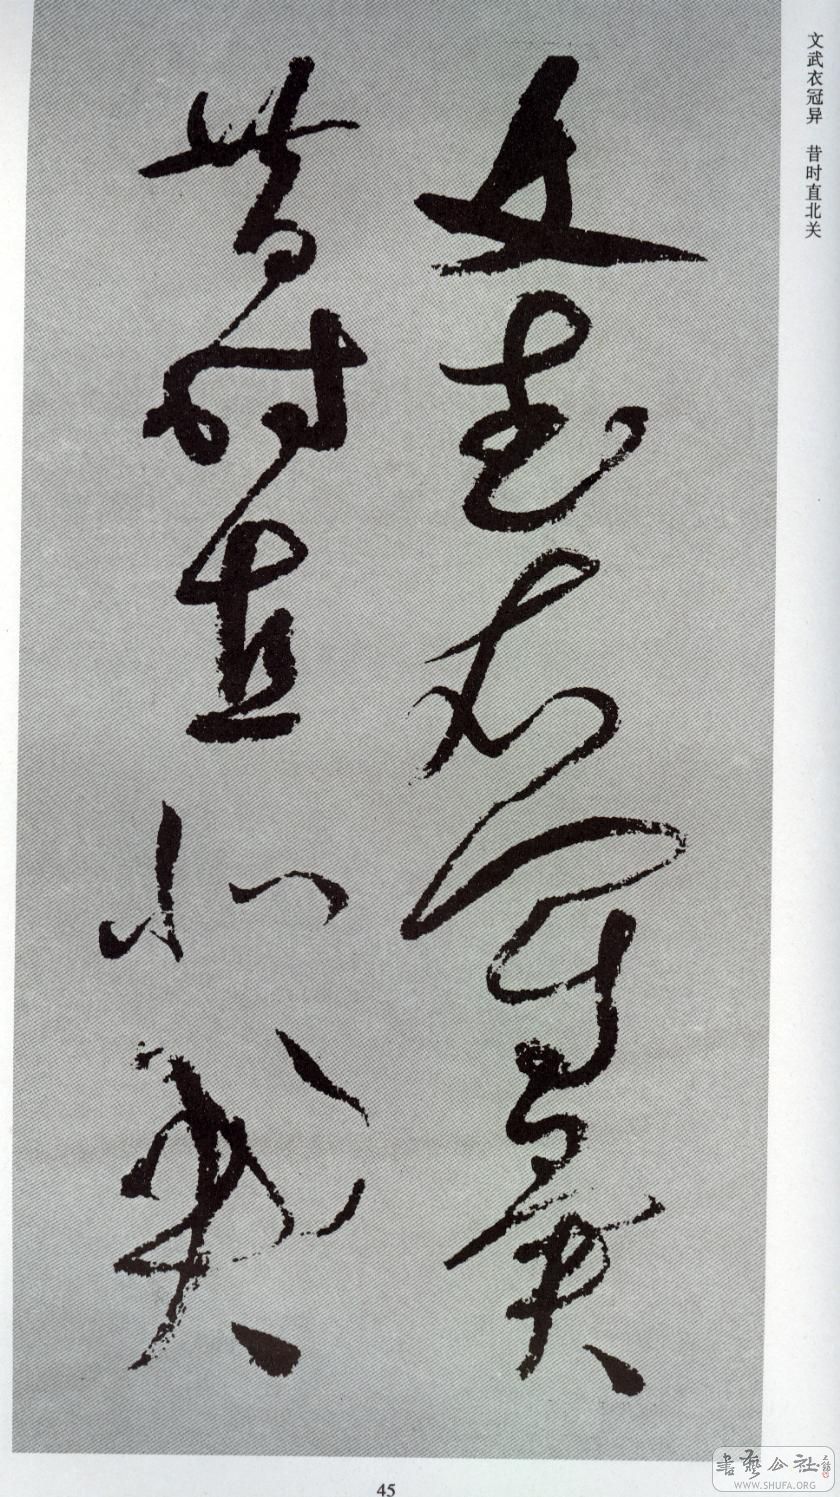 文武衣冠异 昔时直北关
文武衣冠異
昔時直北關
45
書藝公社
WWW.SHUFA.ORG